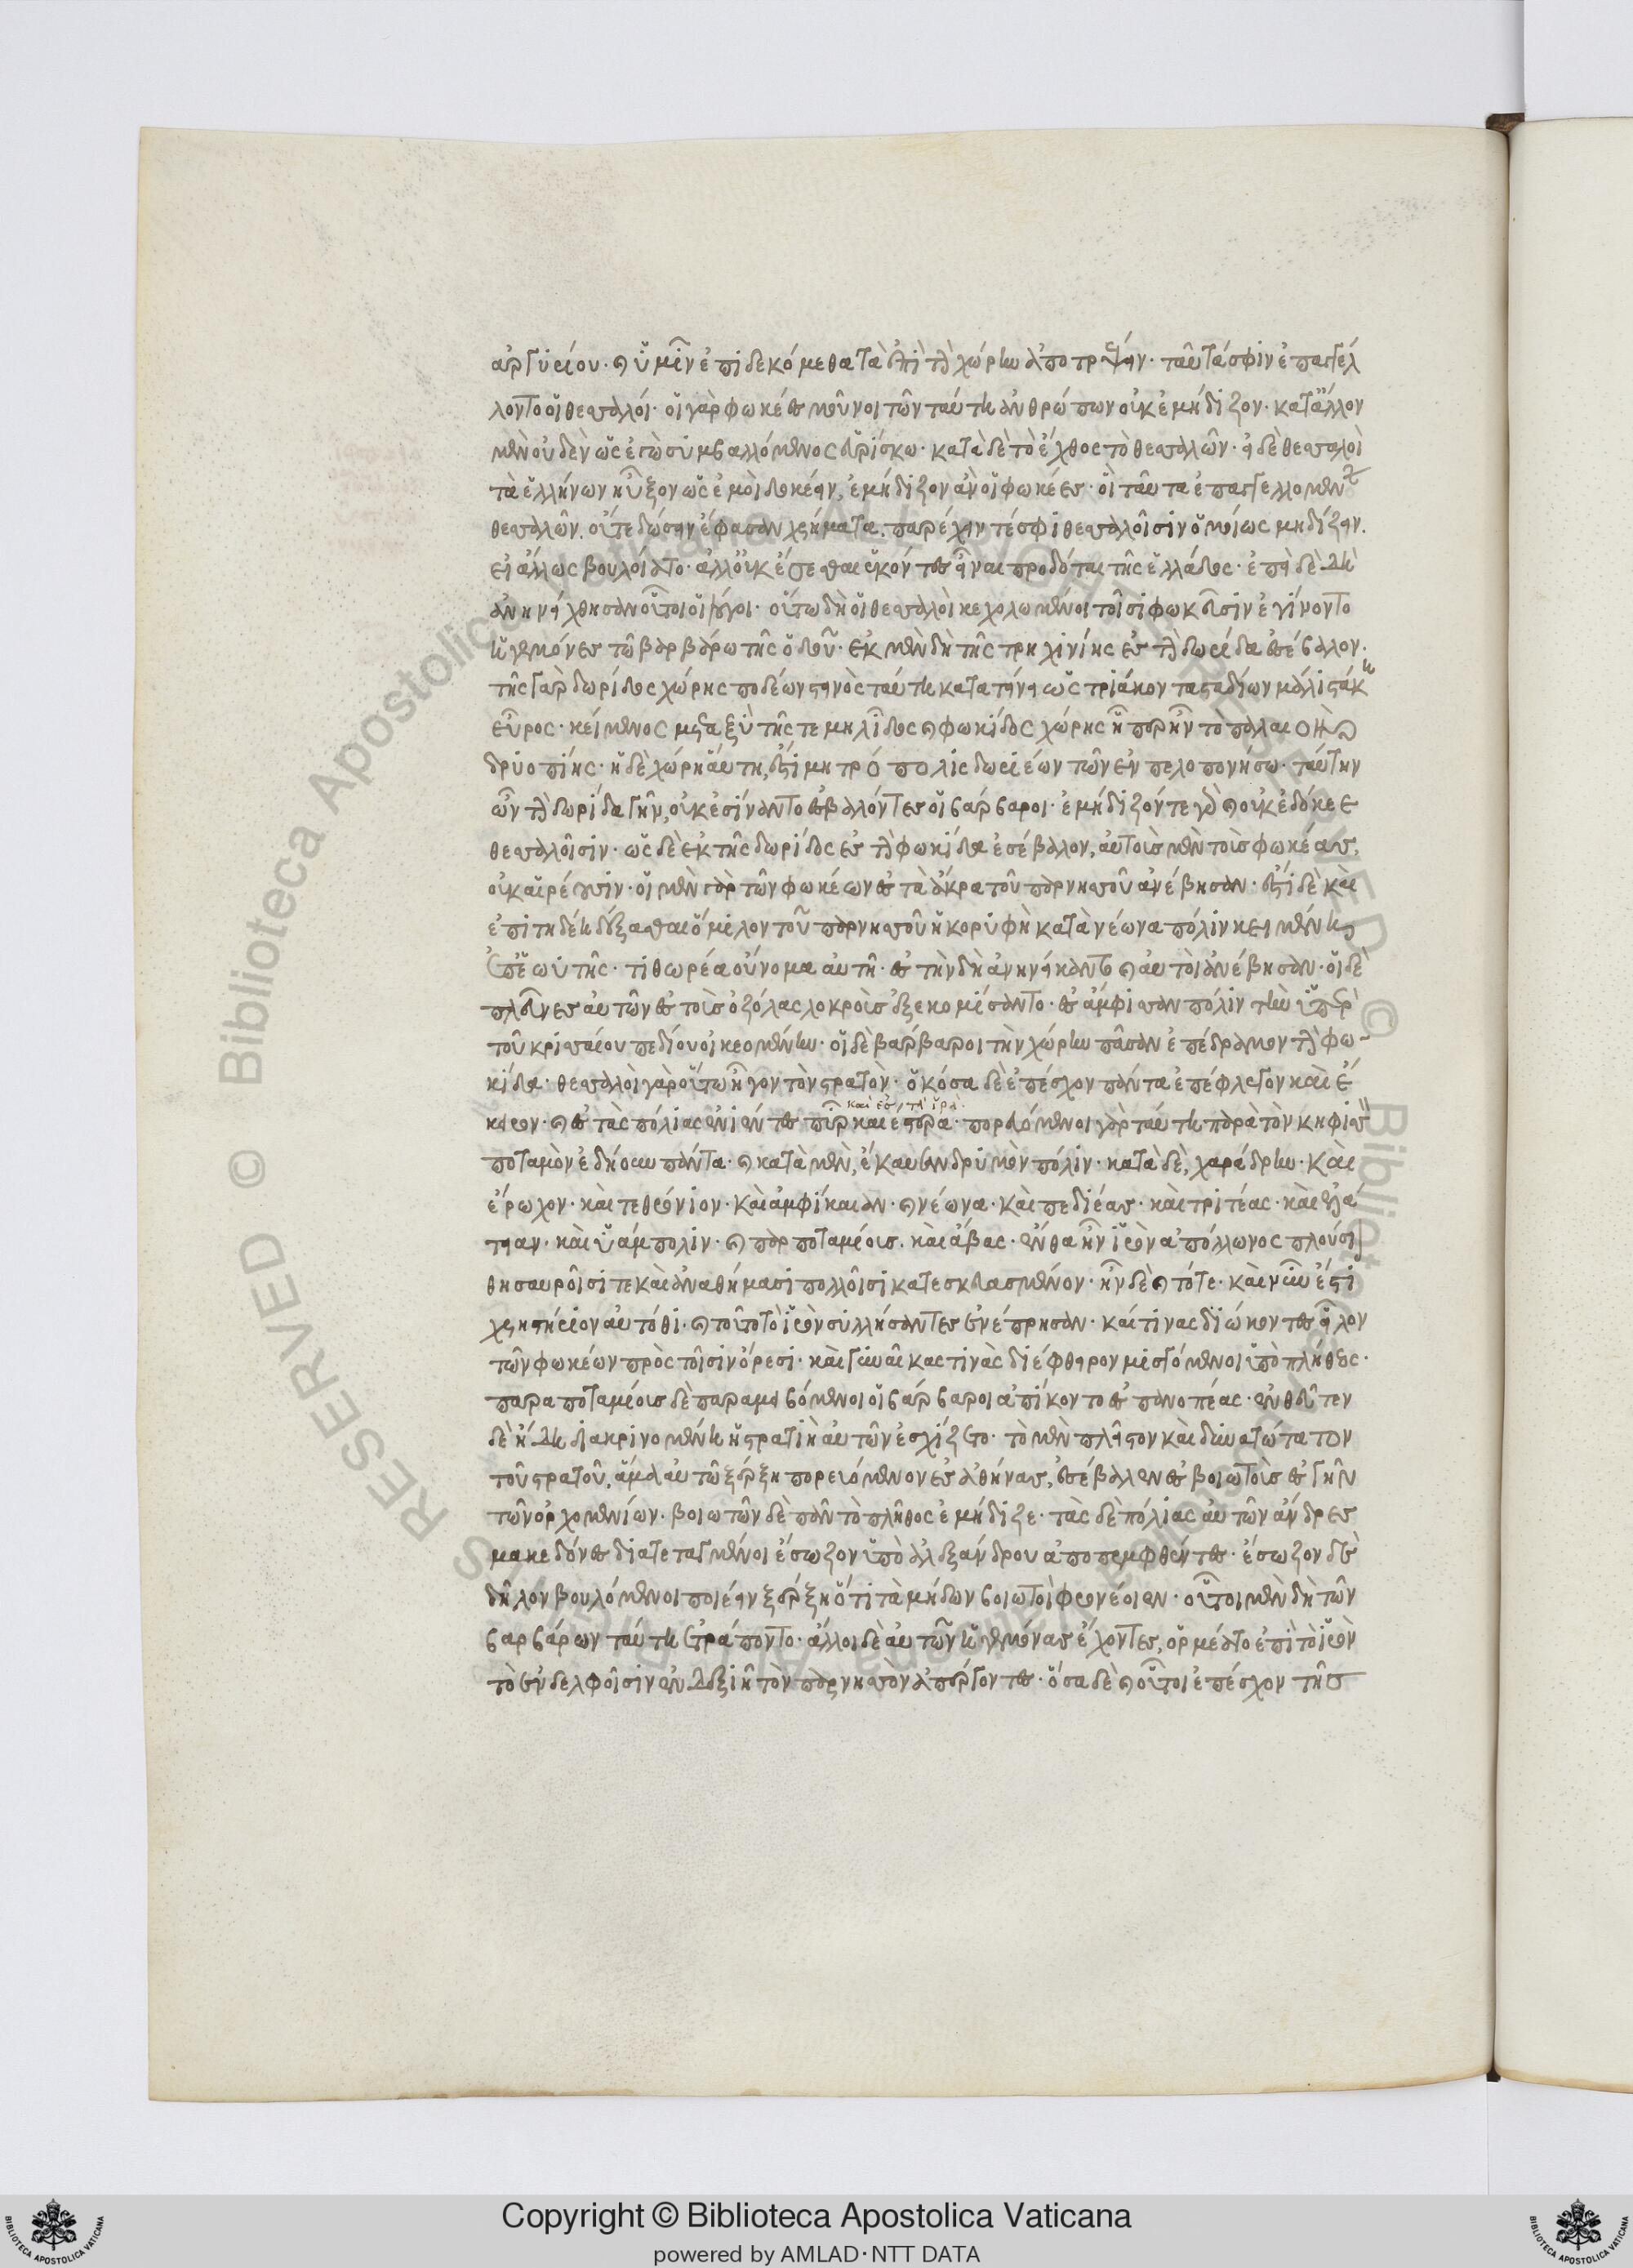 ἀργυρίου· καὶ ὑμῖν ἐπιδεκόμεθα τὰ ἐπὶ τὴν χώρην ἀποτρέψειν· ταῦτά σφιν ἐπαγγέλ
λοντο οἱ θεσσαλοί· οἱ γὰρ φωκέες μοῦνοι τῶν ταύτη ἀνθρώπων οὐκ ἐμήδιζον· κατ' ἄλλον
μὲν οὐδὲν ὡς ἐγὼ συμβαλλόμενος εὑρίσκω· κατὰ δὲ τὸ ἔχθος τὸ θεσσαλῶν· εἰ δὲ θεσσαλοὶ
τὰ ἑλλήνων ηὖξον ὡς ἐμοὶ δοκέειν, ἐμήδιζον ἂν οἱ φωκέες· οἳ ταῦτα ἐπαγγελλομένων
θεσσαλῶν. οὔτε δώσειν ἔφασαν χρήματα. παρέχειν τέ σφι θεσσαλοῖσιν ὁμοίως μηδίζειν.
εἰ ἄλλως βουλοίατο· ἀλλ' οὐκ ἔσεσθαι ἑκόντες εἶναι προδόται τῆς ἑλλάδος· ἐπεὶ δὲ δὴ
ἀνηνείχθησαν οὗτοι οἱ λόγοι· οὕτω δὴ οἱ θεσσαλοὶ κεχολωμένοι τοῖσι φωκεῦσιν ἐγίνοντο
ἡγεμόνες τῶ βαρβάρω τῆς ὁδοῦ· ἐκ μὲν δὴ τῆς τρηχινίης ἐς τὴν δωρίδα ἐσέβαλον·
τῆς γὰρ δωρίδος χώρης ποδεὼν στεινὸς ταύτη κατατείνει ὡς τριάκοντα σταδίων μάλιστά κη
εὖρος· κείμενος μεταξὺ τῆς τε μηλίδος καὶ φωκίδος χώρης ἥ περ ἦν τὸ πάλαι
δρυοπίης· ἡ δὲ χώρη αὕτη, ἐστὶ μητρόπολις δωριέων τῶν ἐν πελοποννήσω· ταύτην
ὦν τὴν δωρίδα γῆν, οὐκ ἐσίναντο ἐσβαλόντες οἱ βάρβαροι· ἐμήδιζόν τε γὰρ καὶ οὐκ ἐδόκεε
θεσσαλοῖσιν· ὡς δὲ ἐκ τῆς δωρίδος ἐς τὴν φωκίδα ἐσέβαλον, αὐτοὺς μὲν τοὺς φωκέας,
οὐκ αἱρέουσιν· οἱ μὲν γὰρ τῶν φωκέων ἐς τὰ ἄκρα τοῦ παρνησοῦ ἀνέβησαν· ἔστι δὲ καὶ
ἐπιτηδέη δέξασθαι ὅμιλον τοῦ παρνησοῦ ἡ κορυφὴ κατὰ νέωνα πόλιν κειμένη
ἐπ' ἑωυτῆς· τιθωρέα οὔνομα αὐτῆ· ἐς τὴν δὴ ἀνηνείκαντο καὶ αὐτοὶ ἀνέβησαν· οἱ δὲ
πλεῦνες αὐτῶν ἐς τοὺς ὀζόλας λοκροὺς ἐξεκομίσαντο· ἐς ἄμφισσαν πόλιν τὴν ὑπὲρ
τοῦ κρισσαίου πεδίου οἰκεομένην· οἱ δὲ βάρβαροι τὴν χώρην πᾶσαν ἐπέδραμον τὴν φω-
κίδα· θεσσαλοὶ γὰρ οὕτω ἦγον τὸν στρατόν· ὁκόσα δὲ ἐπέσχον πάντα ἐπέφλεγον καὶ ἔ
καὶ ἐς τὰ ἱρά·
κειρον· καὶ ἐς τὰς πόλιας ἐνιέντες πῦρ
πορευόμενοι γὰρ ταύτη παρὰ τὸν κηφισσὸν
ποταμὸν ἐδηίουν πάντα· καὶ κατὰ μὲν, ἔκαυσαν δρυμὸν πόλιν· κατὰ δὲ, χαράδρην· καὶ
ἔρωχον· καὶ τεθρώνιον· καὶ ἀμφίκαιαν· καὶ νέωνα· καὶ πεδιέας· καὶ τριτέας· καὶ ἐλά
τειαν· καὶ ὑάμπολιν· καὶ παρποταμίους. καὶ ἄβας· ἔνθα ἦν ἱρὸν ἀπόλλωνος πλούσιον
θησαυροῖσί τε καὶ ἀναθήμασι πολλοῖσι κατεσκευασμένον· ἦν δὲ καὶ τότε· καὶ νῦν ἐστι
χρηστήριον αὐτόθι· καὶ τοῦτο τὸ ἱρὸν συλήσαντες ἐνέπρησαν· καί τινας διώκοντες εἷλον
τῶν φωκέων πρὸς τοῖσιν ὄρεσι· καὶ γυναῖκας τινὰς διέφθειρον μισγόμενοι ὑπὸ πλήθους·
παραποταμίους δὲ παραμειβόμενοι οἱ βάρβαροι ἀπίκοντο ἐς πανοπέας· ἐνθεῦτεν
δὲ ἤδη διακρινομένη ἡ στρατιὴ αὐτῶν ἐσχίζετο· τὸ μὲν πλεῖστον καὶ δυνατώτατον
τοῦ στρατοῦ, ἅμα αὐτῶ ξέρξη πορευόμενον ἐς ἀθήνας, ἐσέβαλεν ἐς βοιωτοὺς ἐς γῆν
τῶν ὀρχομενίων· βοιωτῶν δὲ πᾶν τὸ πλῆθος ἐμήδιζε· τὰς δὲ πόλιας αὐτῶν ἄνδρες
μακεδόνες διατεταγμένοι ἔσωζον ὑπὸ ἀλεξάνδρου ἀποπεμφθέντες· ἔσωζον δὲ
δῆλον βουλόμενοι ποιέειν ξέρξη ὅτι τὰ μήδων βοιωτοὶ φρονέοιεν· οὗτοι μὲν δὴ τῶν
βαρβάρων ταύτη ἐτράποντο· ἄλλοι δὲ αὐτῶν ἡγεμόνας ἔχοντες, ὁρμέατο ἐπὶ τὸ ἱρὸν
τὸ ἐν δελφοῖσιν ἐν δεξιῆ τὸν παρνησὸν ἀπέργοντες· ὅσα δὲ καὶ οὗτοι ἐπέσχον τῆς
Copyright © Biblioteca Apostolica Vaticana
powered by AMLAD·NTT DATA